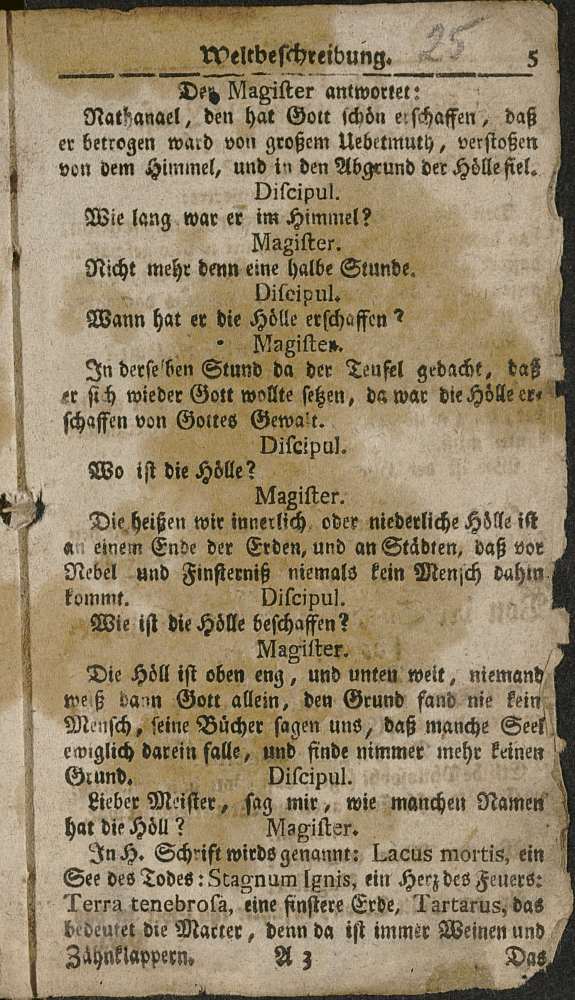 Weltbeschreibung. 25 5
Der Magiſter antwortet:
Nathanael, den hat Gott ſchön erſchaffen, daß
er betrogen ward von großem Uebetmuth, verſtoßen
von dem Himmel, und in den Abgrund der Hölle fiel.
Diſcipul.
Wie lang war er im Himmel?
Magiſter.
Nicht mehr denn eine halbe Stunde.
Diſcipul.
Wann hat er die Hölle erſchaffen?
Magiſter.
In derſelben Stund da der Teufel gedacht, daß
er ſich wieder Gott wollte ſetzen, da war die Hölle er-
ſchaffen von Gottes Gewalt.
Diſcipul.
Wo iſt die Hölle?
Magiſter.
Die heißen wir innerlich oder niederliche Hölle iſt
an einem Ende der Erden, und an Städten, daß vor
Nebel und Finſterniß niemals kein Menſch dahin
kommt. Diſcipul.
Wie iſt die Hölle beſchaffen?
Magiſter.
Die Höll iſt oben eng, und unten weit, niemand
weiß dann Gott allein, den Grund fand nie kein
Menſch, ſeine Bücher ſagen uns, daß manche Seel
ewiglich darein falle, und finde nimmer mehr keinen
Grund. Diſcipul.
Lieber Meiſter, ſag mir, wie manchen Namen
hat die Höll? Magiſter.
In H. Schrift wirds genannt: Lacus mortis, ein
See des Todes: Stagnum Ignis, ein Herz des Feuers:
Terra tenebroſa, eine finſtere Erde, Tartarus, das
bedeutet die Marter, denn da iſt immer Weinen und
Zähnklappern. A 3 Das